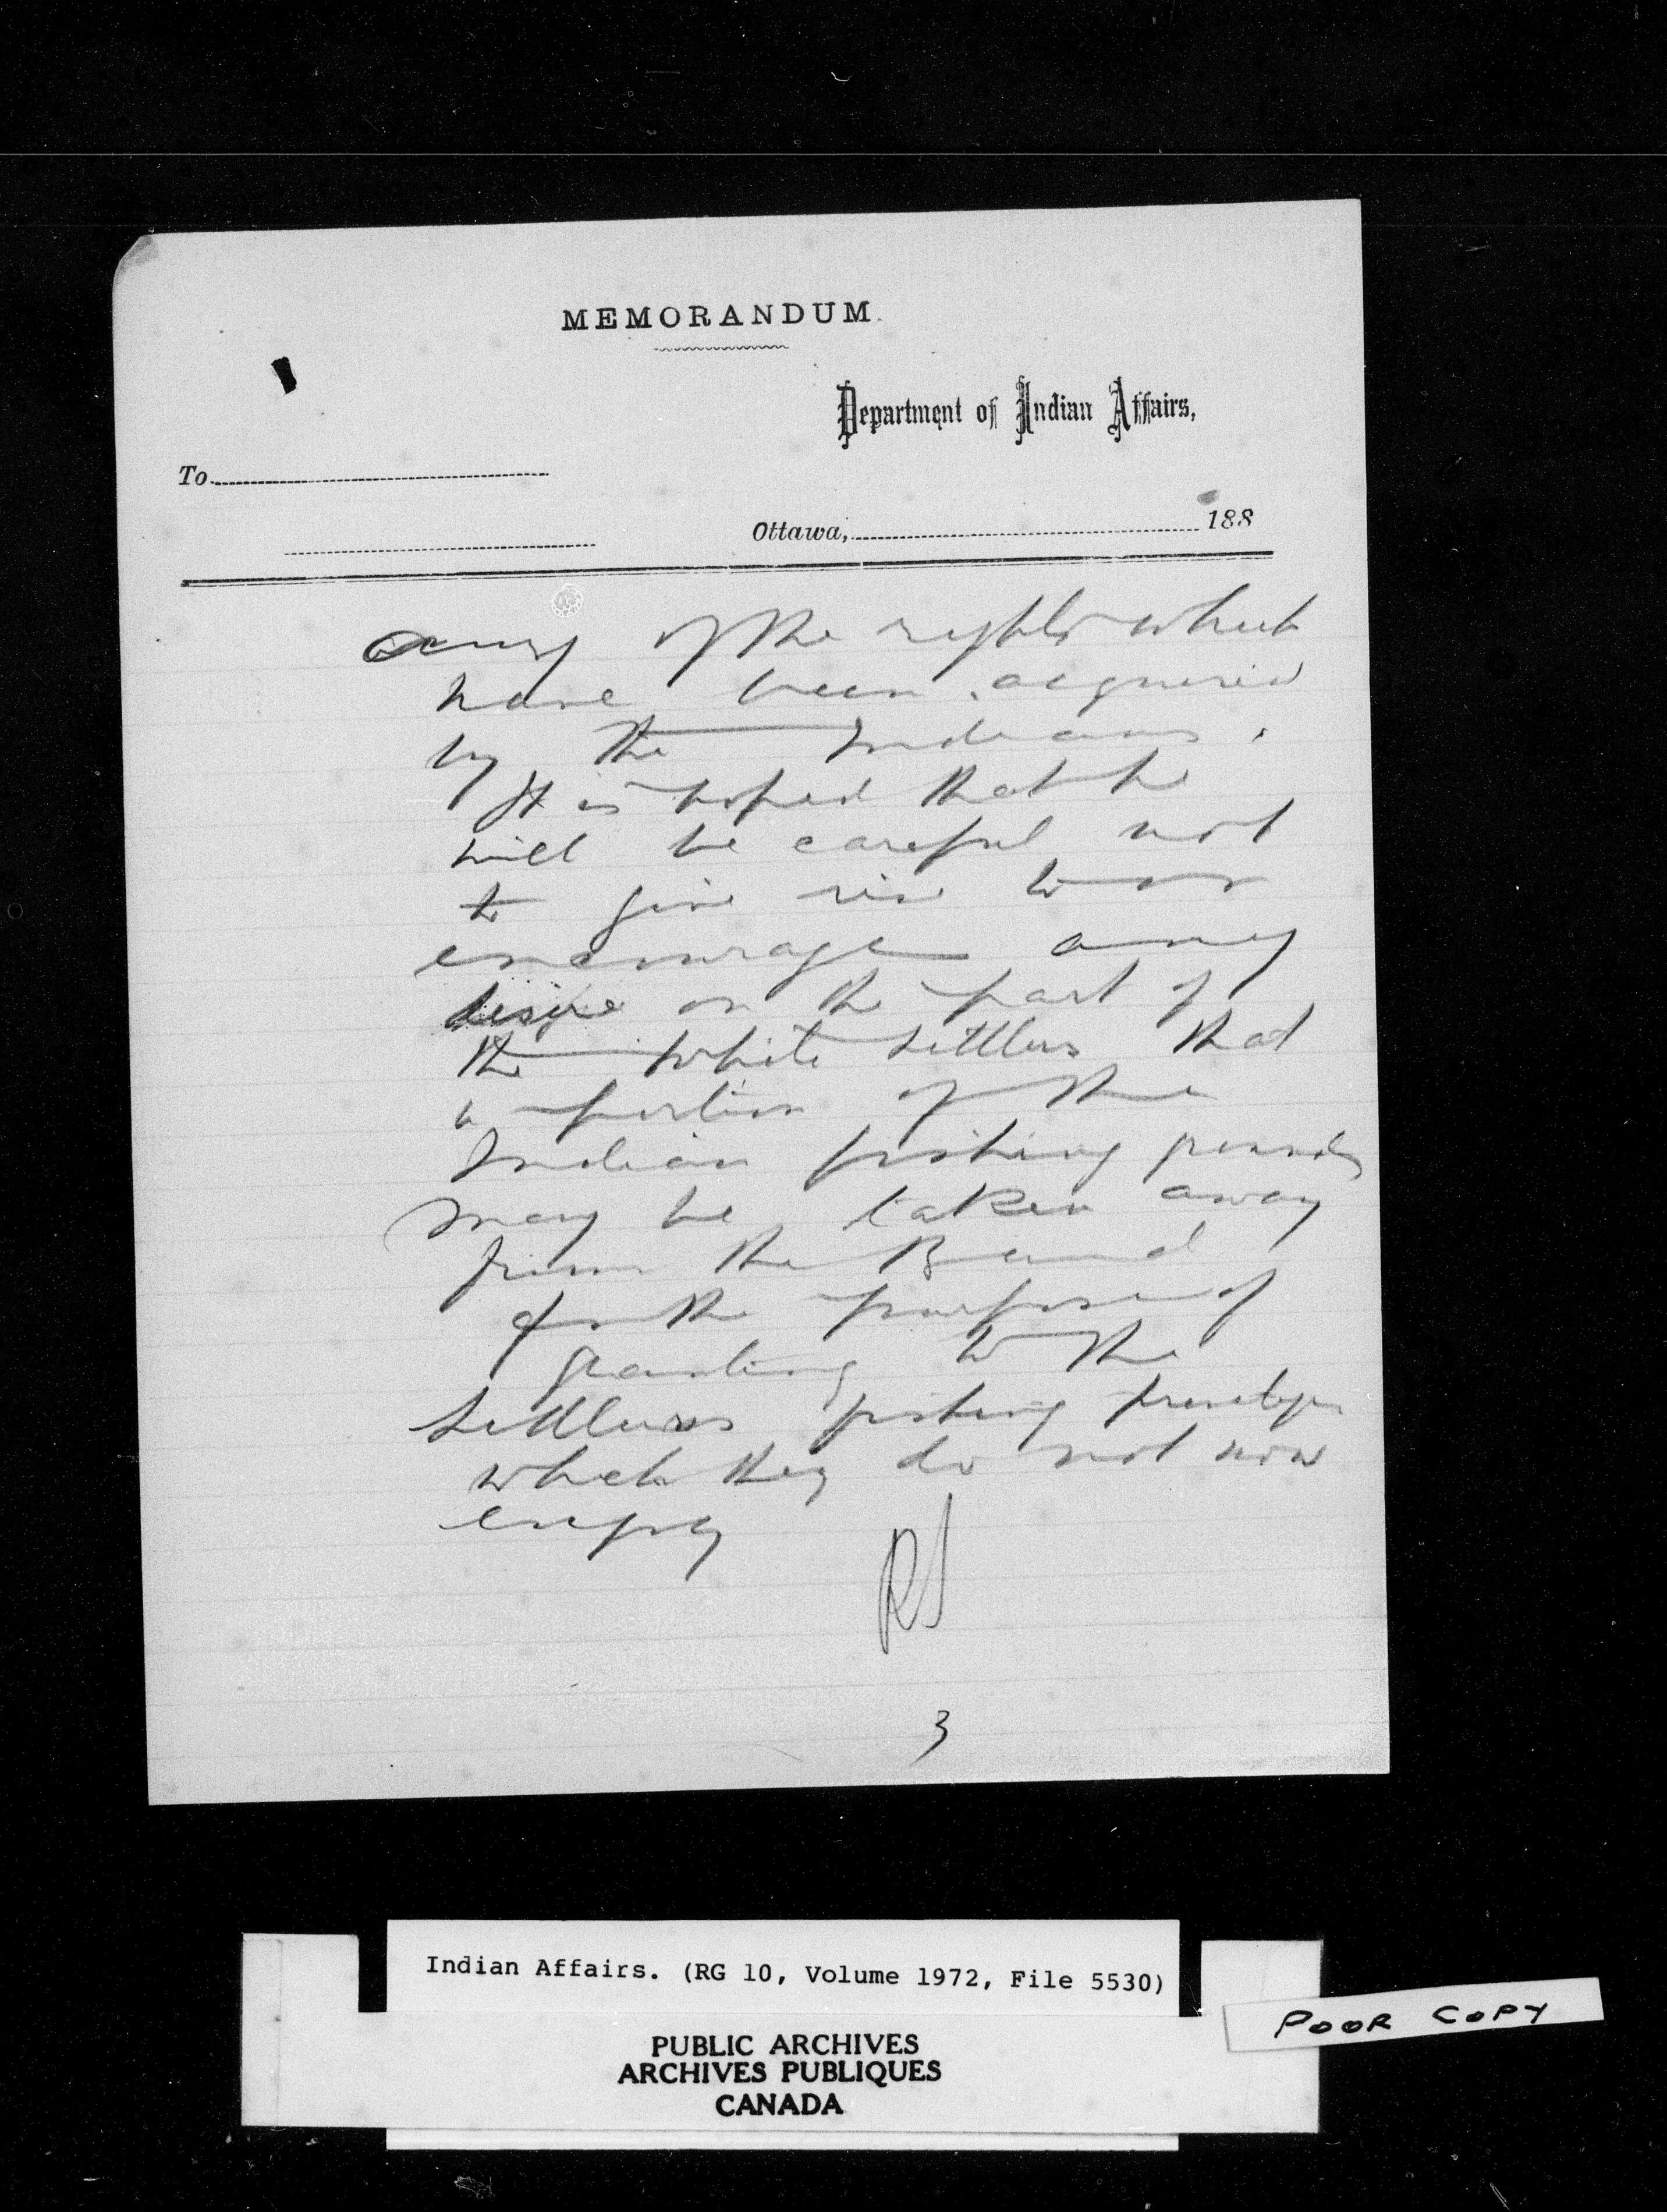 MEMORANDUM.
Department of Indian Affairs,
To
Ottawa, 188
any of the rights which
have been acquired
by the Indians.
It is hoped that he
will be careful not
to give rise to or
encourage any
desire on the part of
the white settlers that
a portion of the
Indian fishing grounds
may be taken away
from the Band
for the purpose of
granting to the
settlers fishing privileges
which they do not now
enjoy
RS
3
Indian Affairs. (RG 10, Volume 1972, File 5530)
PUBLIC ARCHIVES
ARCHIVES PUBLIQUES
CANADA
POOR COPY